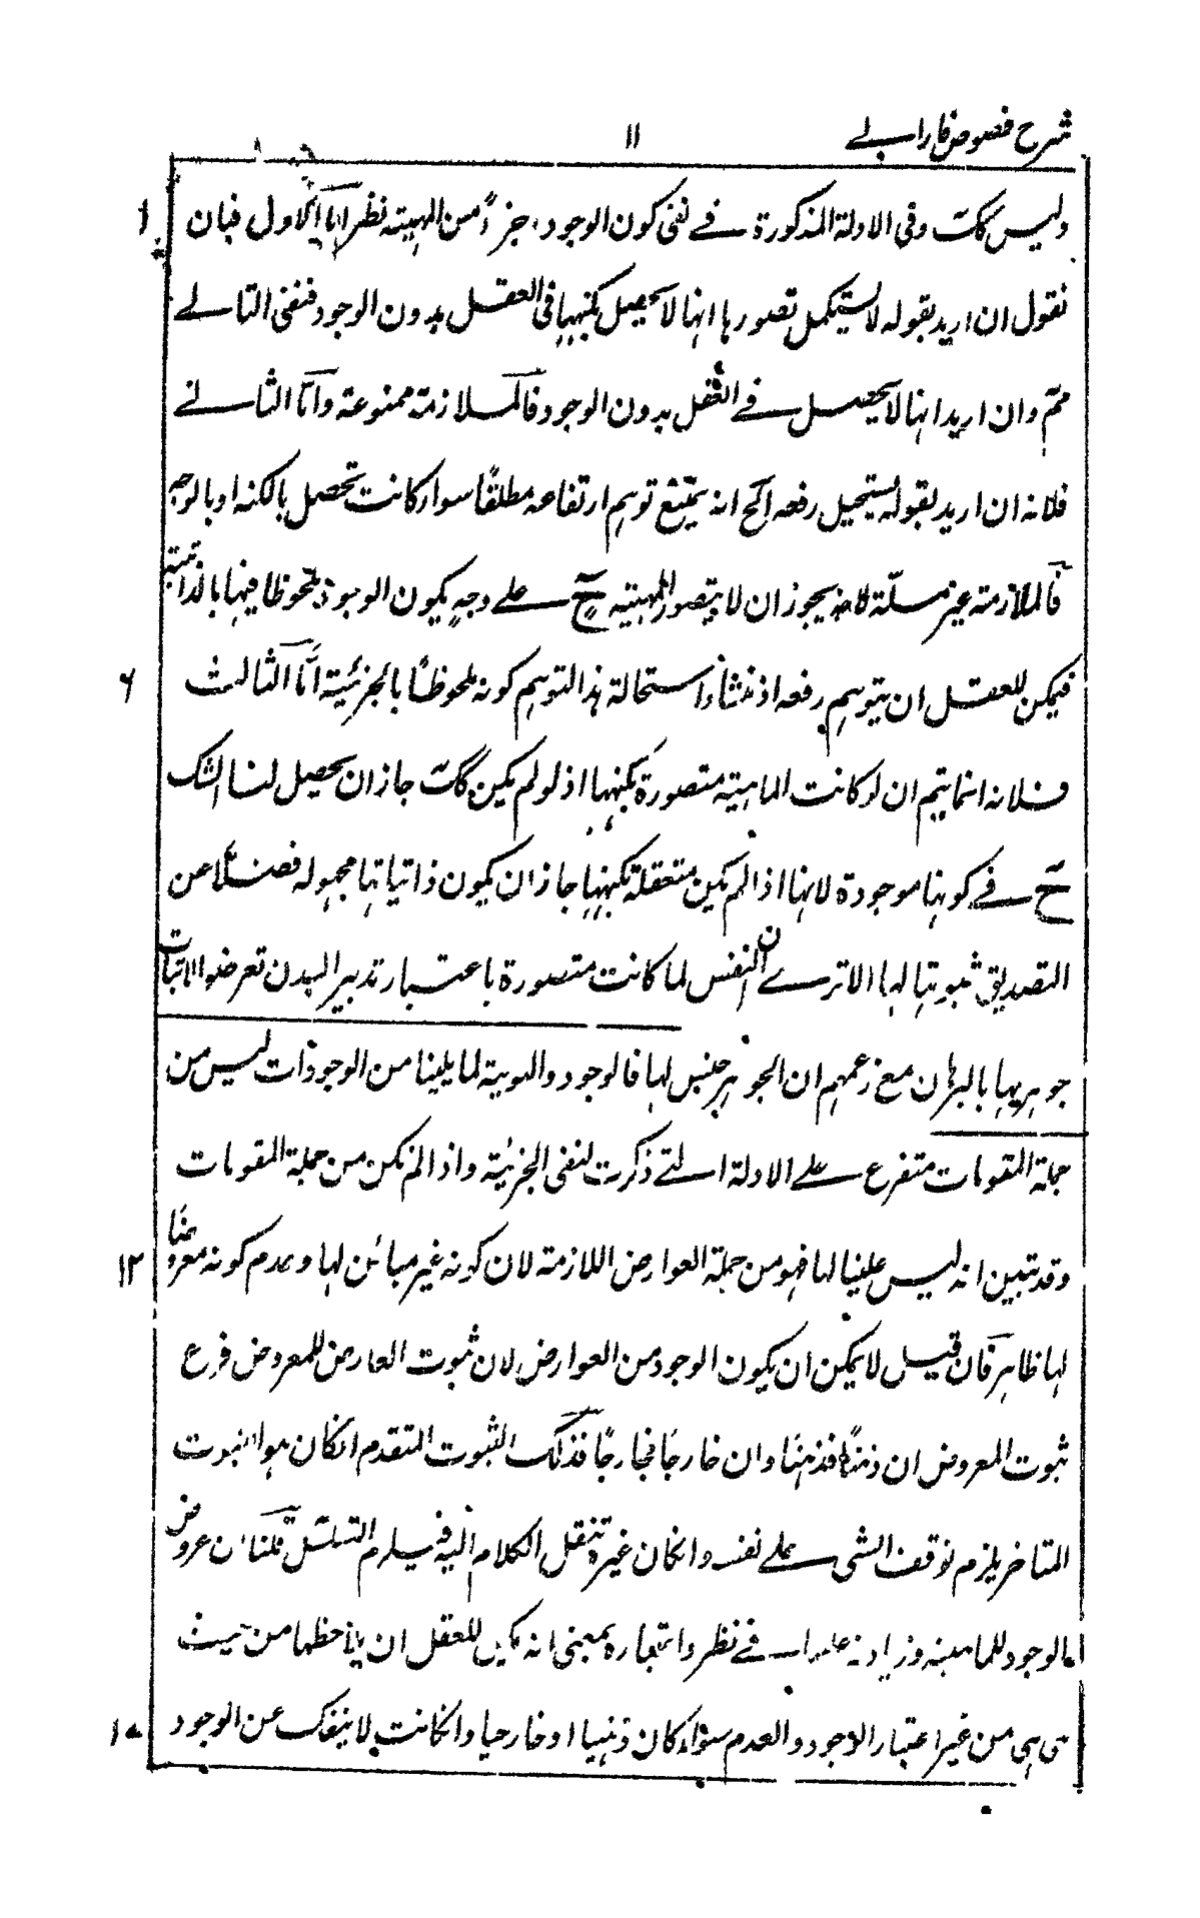 شرح فصوص فارابی ۱۱
ولیس کک وفی الادلة المذکورة فی نفی کون الوجود جزءً من المهیته نظر اما الاول فبان
نقول ان ارید بقوله لایستکمل تصورها انها لایحصل بکنهها فی العقل بدون الوجود فنفی التالی
مم وان ارید انها لایحصل فی العقل بدون الوجود فالملازمة ممنوعة واما الثانی
فلانه ان ارید بقوله یستحیل رفعه الخ انه یمتنع توهم ارتفاعه مطلقًا سواء کانت تحصل بالکنه او بالوجه
فالملازمة غیر مسلمة لانه یجوز ان لا یتصور المهیته ح علی وجهٍ یکون الوجود ملحوظا فیها بالذات
۶ فیمکن للعقل ان یتوهم رفعه اذ منشاء استحالة هذا التوهم کونه ملحوظًا بالجزئیته اما الثالث
فلانه انما یتم ان لو کانت الماهیته متصورة بکنهها اذ لو لم یکن کک جاز ان یحصل لنا الشک
ح فی کونها موجودة لانها اذا لم یکن متعقلة بکنهها جاز ان یکون ذاتیاتها مجهوله فضلًا عن
التصدیق ثبوتها لها الا تری ان النفس لما کانت متصورة باعتبار تدبیر البدن تعرضوا لاثبات
جوهریها بالبرهان مع زعمهم ان الجوهر جنس لها فالوجود والهویة لما یلینا من الوجودات لیس من
جملة المقومات متفرع علی الادلة التی ذکرت لنفی الجزئیة واذا لم تکن من جملة المقومات
۱۲ وقد تبین انه لیس علینا لها فهو من جملة العوارض اللازمة لان کونه غیر مبائن لها وعدم کونه معروضًا
لها ظاهر فان قیل لا یمکن ان یکون الوجود من العوارض لان ثبوت العارض للمعروض فرع
ثبوت المعروض ان ذهنًا فذهنًا وان خارجًا فخارجًا فذلک الثبوت المتقدم انکان هو الثبوت
المتاخر یلزم توقف الشی علی نفسه وانکان غیره ننقل الکلام الیه فیلزم التسلسل قلنا ان عروض
الوجود للماهیته وزیادته علیها فی نظر واعتباره بمعنی انه یمکن للعقل ان یلاحظها من حیث
هی هی من غیر اعتبار الوجود والعدم سواء کان ذهنیا او خارجیا وانکانت لا ینفک عن الوجود